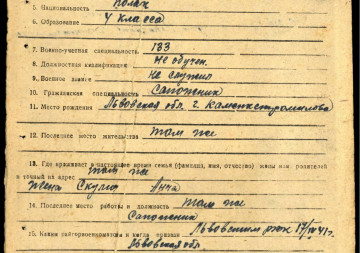 5. Национальность поляк
6. Образование 4 класса
7. Военно-учетная специальность 133
8. Должностная квалификация не обучен.
9. Военное звание не служил
10. Гражданская специальность сапожник
11. Место рождения Львовская обл. г. Каменкстромилова
12. Последнее место жительства там же
13. Где проживает в настоящее время семья (фамилия, имя, отчество) жены или родителей
и точный их адрес там же
жена Анна
14. Последнее место работы и должность там же
сапожник
15. Каким райгорвоенкоматом и когда призван Львовским 41 г.
Львовская обл